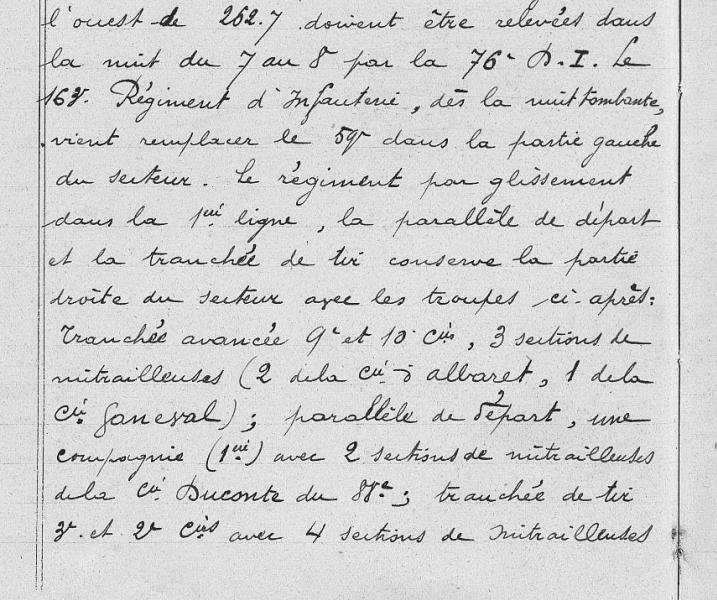 l'ouest de 262.7 doivent être relevées dans
la nuit du 7 au 8 par la 76e D.I. Le
163e Régiment d'Infanterie, dès la nuit tombante,
vient remplacer le 59e dans la partie gauche
du secteur. Le régiment par glissement
dans la 1ère ligne, la parallèle de départ
et la tranchée de tir conserve la partie
droite du secteur avec les troupes ci-après:
Tranchée avancée 9e et 10e Cies, 3 sections de
mitrailleuses (2 de la Cie d'Albaret, 1 de la
Cie Ganeval); parallèle de départ, une
compagnie (1ère) avec 2 sections de mitrailleuses
de la Cie Duconte du 88e; tranchée de tir
3e et 2e Cies avec 4 sections de mitrailleuses